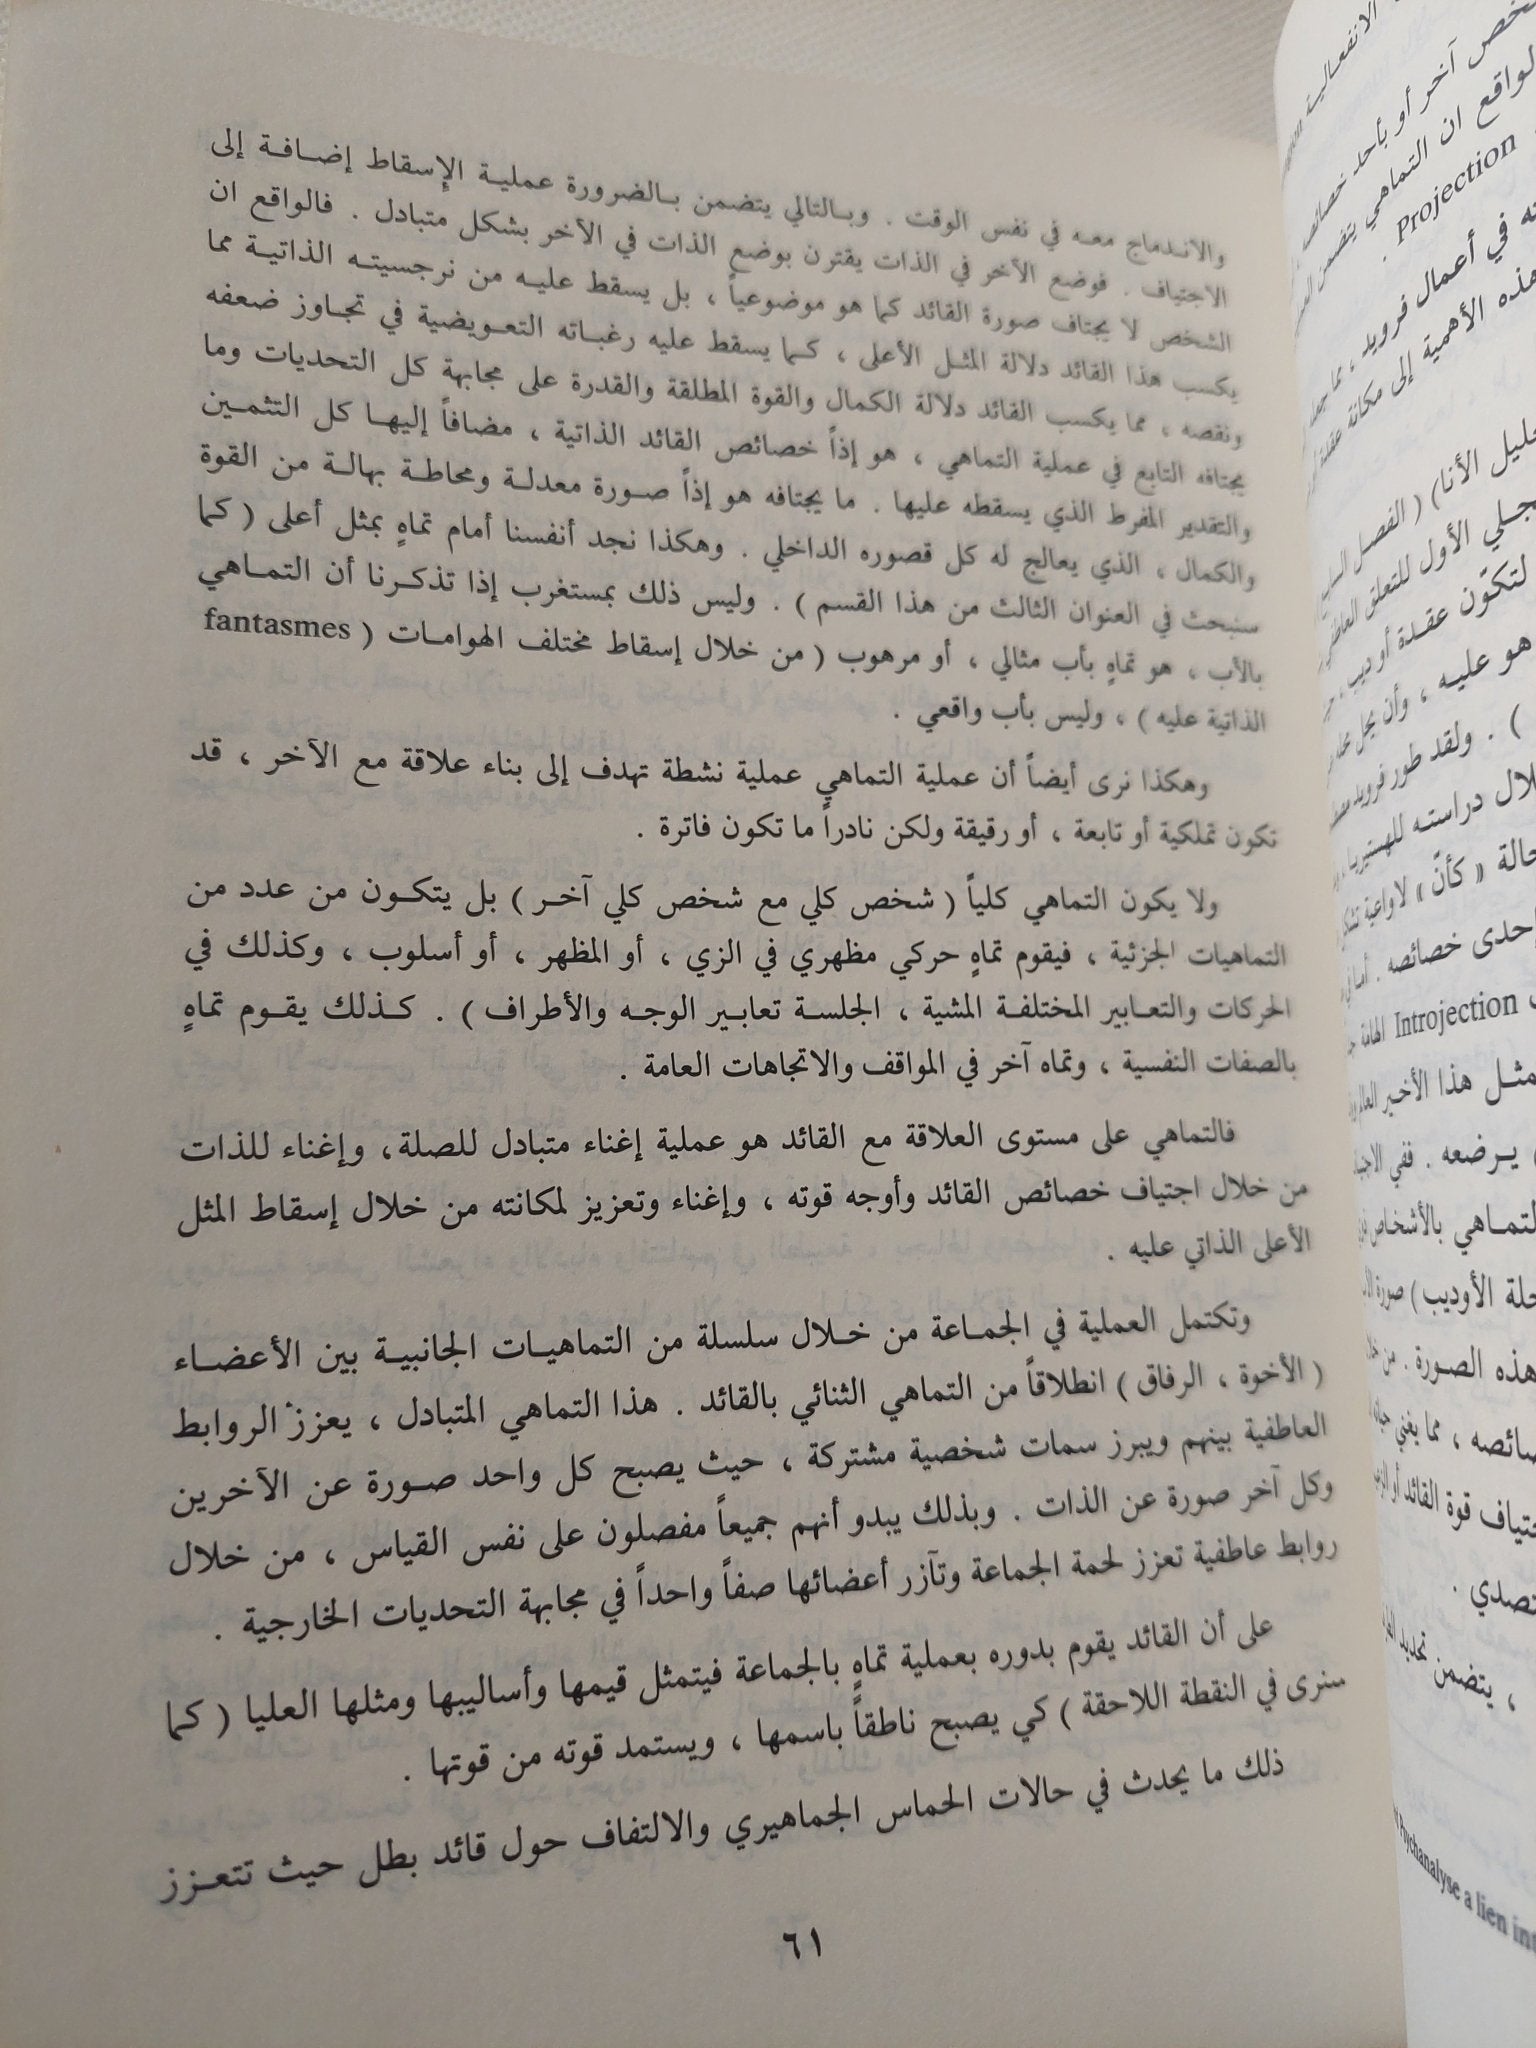 والاندماج معه في نفس الوقت . وبالتالي يتضمن بالضرورة عملية الإسقاط إضافة إلى
الاجتياف . فوضع الآخر في الذات يقترن بوضع الذات في الآخر بشكل متبادل . فالواقع ان
الشخص لا يجتاف صورة القائد كما هو موضوعياً ، بل يسقط عليه من نرجسيته الذاتية مما
يكسب هذا القائد دلالة المثل الأعلى ، كما يسقط عليه رغباته التعويضية في تجاوز ضعفه
ونقصه ، مما يكسب القائد دلالة الكمال والقوة المطلقة والقدرة على مجابهة كل التحديات وما
يجتافه التابع في عملية التماهي ، هو إذاً خصائص القائد الذاتية ، مضافاً إليها كل التثمين
والتقدير المفرط الذي يسقطه عليها . ما يجتافه هو إذاً صورة معدلة ومحاطة بهالة من القوة
والكمال ، الذي يعالج له كل قصوره الداخلي . وهكذا نجد أنفسنا أمام تماهٍ بمثل أعلى ( كما
سنبحث في العنوان الثالث من هذا القسم ) . وليس ذلك بمستغرب إذا تذكرنا أن التماهي
بالأب ، هو تماهٍ بأب مثالي ، أو مرهوب ( من خلال إسقاط مختلف الهوامات ( fantasmes
الذاتية عليه ) ، وليس بأب واقعي .
وهكذا نرى أيضاً أن عملية التماهي عملية نشطة تهدف إلى بناء علاقة مع الآخر ، قد
تكون تملكية أو تابعة ، أو رقيقة ولكن نادراً ما تكون فاترة .
ولا يكون التماهي كلياً ( شخص كلي مع شخص كلي آخر ) بل يتكون من عدد من
التماهيات الجزئية ، فيقوم تماهٍ حركي مظهري في الزي ، أو المظهر ، أو أسلوب ، وكذلك في
الحركات والتعابير المختلفة المشية ، الجلسة تعابير الوجه والأطراف ) . كذلك يقوم تماهٍ
بالصفات النفسية ، وتماه آخر في المواقف والاتجاهات العامة .
فالتماهي على مستوى العلاقة مع القائد هو عملية إغناء متبادل للصلة، وإغناء للذات
من خلال اجتياف خصائص القائد وأوجه قوته ، وإغناء وتعزيز لمكانته من خلال إسقاط المثل
الأعلى الذاتي عليه .
وتكتمل العملية في الجماعة من خلال سلسلة من التماهيات الجانبية بين الأعضاء
( الأخوة ، الرفاق ) انطلاقاً من التماهي الثنائي بالقائد . هذا التماهي المتبادل ، يعزز الروابط
العاطفية بينهم ويبرز سمات شخصية مشتركة ، حيث يصبح كل واحد صورة عن الآخرين
وكل آخر صورة عن الذات . وبذلك يبدو أنهم جميعاً مفصلون على نفس القياس ، من خلال
روابط عاطفية تعزز لحمة الجماعة وتآزر أعضائها صفاً واحداً في مجابهة التحديات الخارجية .
على أن القائد يقوم بدوره بعملية تماهٍ بالجماعة فيتمثل قيمها وأساليبها ومثلها العليا ( كما
سنرى في النقطة اللاحقة ) كي يصبح ناطقاً باسمها ، ويستمد قوته من قوتها .
ذلك ما يحدث في حالات الحماس الجماهيري والالتفاف حول قائد بطل حيث تتعزز
٦١
الانفعالية
شخص آخر أو بأحد خصائصه
الواقع ان التماهي يتضمن
Projection .
في أعمال فرويد ، مما
هذه الأهمية إلى مكانة عقدة
الأنا ) ( الفصل
الأول للتعلق العاطفي
لتكوّن عقدة أوديب ،
هو عليه ، وأن يحل محله
) . ولقد طور فرويد
دراسته للهستيريا ،
حالة « كأنّ » لاواعية
إحدى خصائصه .
Introjection الهامة
هذا الأخير
يرضعه . ففي
التماهي بالأشخاص
الأوديب ) صورة
هذه الصورة . من
، مما يغني
قوة القائد أو
.
، يتضمن تحديد
Psychanalyse a lien